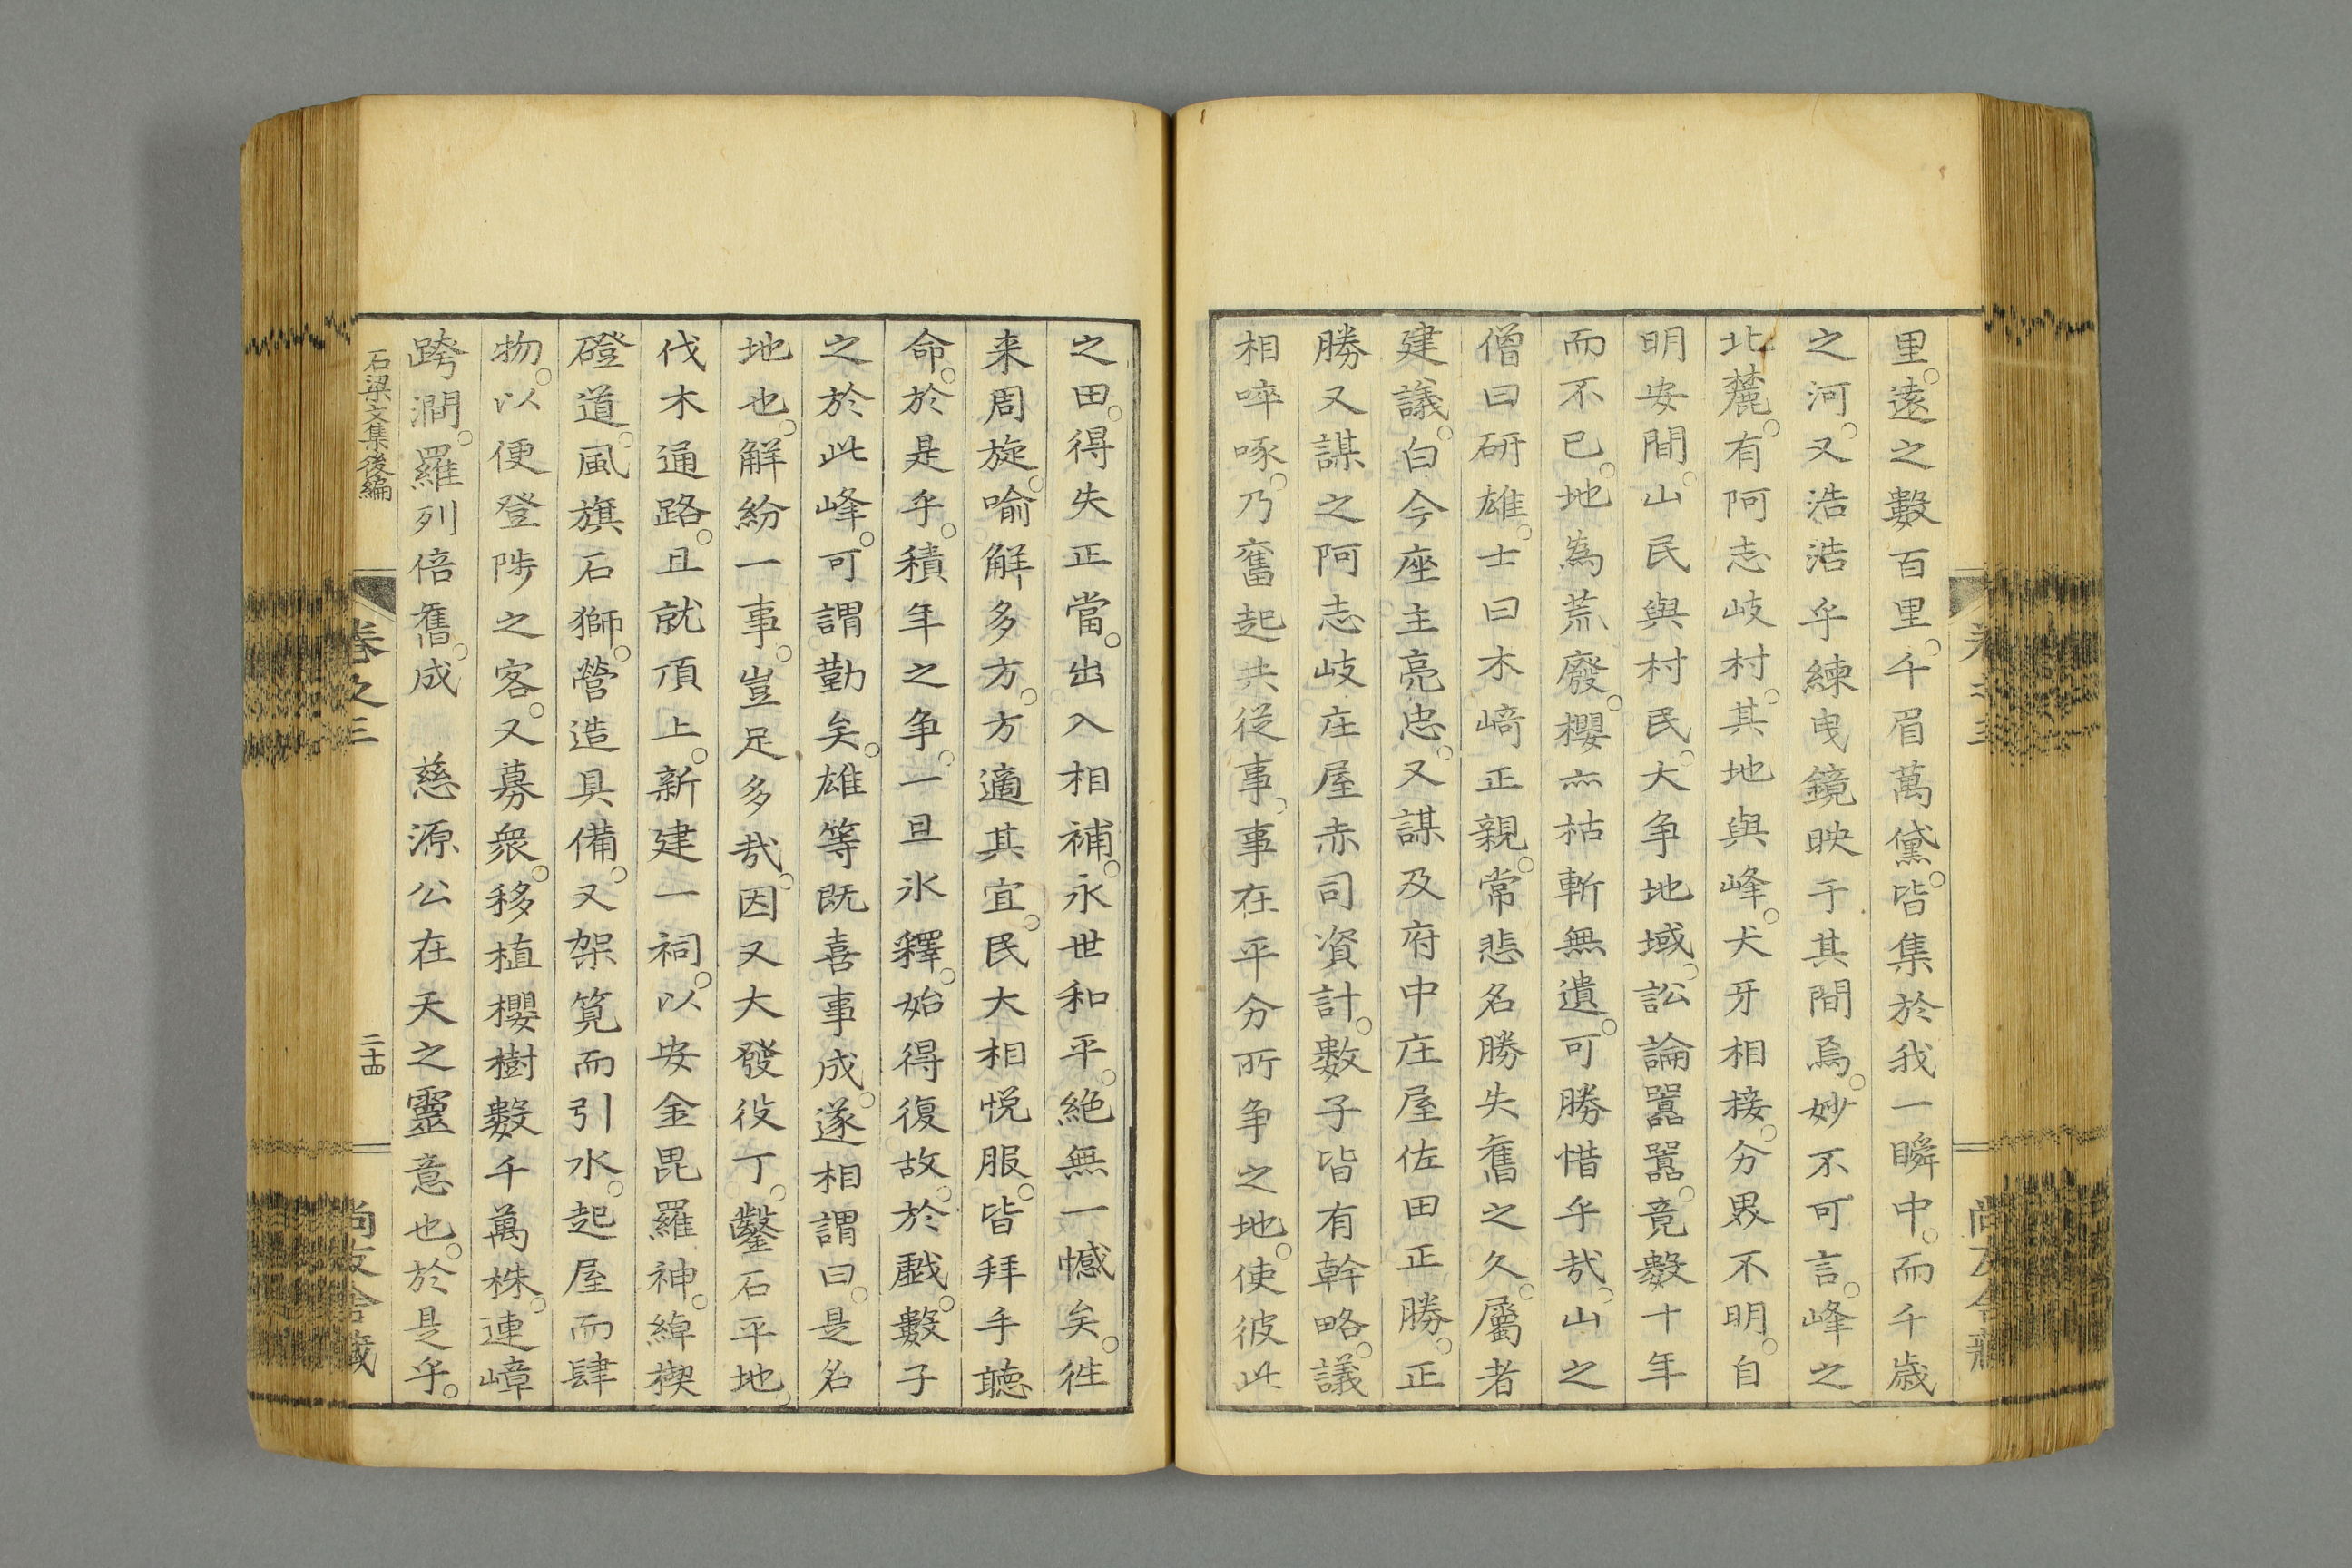 里。遠之數百里。千眉萬黛。皆集於我一瞬中。而千歳
之河。又浩浩乎練曳鏡映于其間焉。妙不可言。峰之
北麓。有阿志岐村。其地與峰。犬牙相接。分界不明。自
明安間。山民與村民。大争地域。訟論囂囂。竟數十年
而不已。地為荒廢。櫻亦枯斬無遺。可勝惜乎哉。山之
僧曰研雄。士曰木﨑正親。常悲名勝失舊之久。屬者
建議。白今座主亮忠。又謀及府中庄屋佐田正勝。正
勝又謀之阿志岐庄屋赤司資計。數子皆有幹略。議
相啐啄。乃奮起共從事。事在平分所争之地。使彼此
之田。得失正當。出入相補。永世和平。絶無一憾矣。徃
来周旋。喻解多方。方適其宜。民大相悦服。皆拜手聴
命。於是乎。積年之争。一旦氷釋。始得復故。於戲。數子
之於此峰。可謂勤矣。雄等既喜事成。遂相謂曰。是名
地也。解紛一事。豈足多哉。因又大發役丁。鑿石平地。
伐木通路。且就頂上。新建一祠。以安金毘羅神。綽楔
磴道。風旗石獅。營造具備。又架筧而引水。起屋而肆
物。以便登陟之客。又募衆。移植櫻樹數千萬株。連嶂
跨澗。羅列倍舊。成　慈源公在天之靈意也。於是乎。
石梁文集後編
卷之三
二十四
尚友舎藏